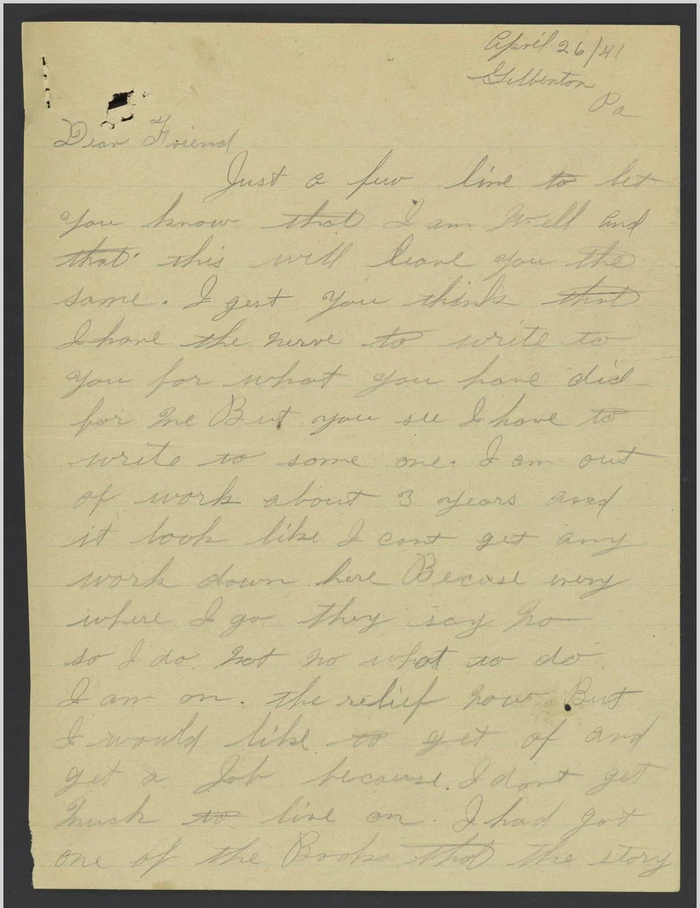 April 26/41
Gilberton
Pa
Dear Friend
Just a few line to let
you know that I am Well and
that this will leave you the
same. I gest you think that
I have the nerve to write to
you for what you have did
for me But you see I have to
write to some one. I am out
of work about 3 years and
it look like I cant get any
work down here Becase every
where I go they say no
so I do not no what to do
I am on. the relief now But
I would like to get of and
get a Job because. I dont get
much to live on. I had got
one of the Books that the story